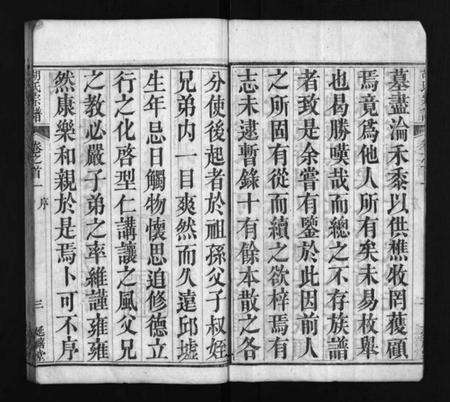 墓盡淪禾黍以供樵牧罔獲顧
焉竟為他人所有矣未易枚舉
也曷勝嘆哉而總之不存族譜
者致是余嘗有鑒於此因前人
之所固有從而續之欲梓焉有
志未逮暫錄十有餘本散之各
分使後起者於祖孫父子叔姪
兄弟內一目爽然而久遠邱墟
生年忌日觸物懷思追修德立
行之化啓型仁講讓之風父兄
之教必嚴子弟之率維謹雍雍
然康樂和親於是焉卜可不序
胡氏宗譜
卷之首
序
三